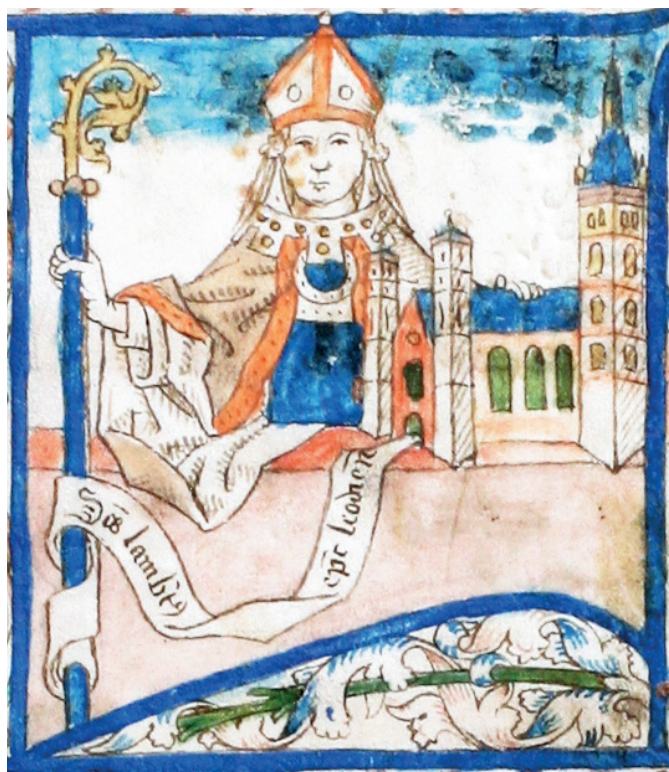 Scs lambt9
epc leodien